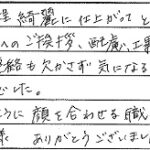 程 綺麗に仕上がって と
へのご挨拶、配慮、工事
絡も欠かさず 気になる
した。
うに 顔を合わせる職
様 ありがとうございまし